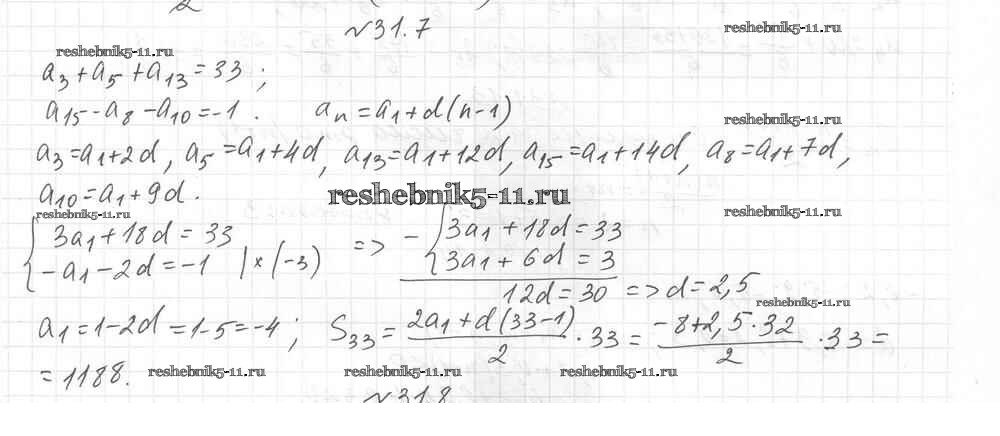 №31.7
reshebnik5-11.ru
reshebnik5-11.ru
a3 + a5 + a13 = 33 ;
a15 - a8 - a10 = -1 . an = a1 + d(n-1)
reshebnik5-11.ru
a3 = a1 + 2d , a5 = a1 + 4d, a13 = a1 + 12d, a15 = a1 + 14d, a8 = a1 + 7d,
a10 = a1 + 9d .
reshebnik5-11.ru
reshebnik5-11.ru
reshebnik5-11.ru
{ 3a1 + 18d = 33 => - { 3a1 + 18d = 33
-a1 - 2d = -1 | × (-3) 3a1 + 6d = 3
12d = 30 => d = 2,5
reshebnik5-11.ru
a1 = 1 - 2d = 1 - 5 = -4 ; S33 = (2a1 + d(33-1))/2 · 33 = (-8 + 2,5 · 32)/2 · 33 =
= 1188.
reshebnik5-11.ru
reshebnik5-11.ru
reshebnik5-11.ru
№31.8